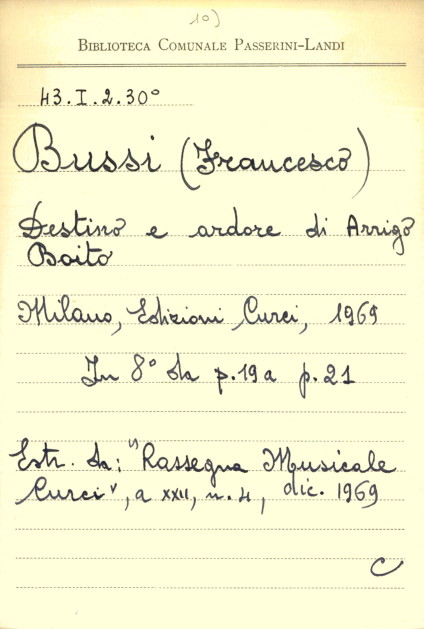 10)
BIBLIOTECA COMUNALE PASSERINI-LANDI
43.I.2.30°
Bussi (Francesco)
Destino e ardore di Arrigo
Boito
Milano, Edizioni Curci, 1969
In 8° da p.19 a p.21
Estr. da: "Rassegna Musicale
Curci", a XXII, n. 4, dic. 1969
C